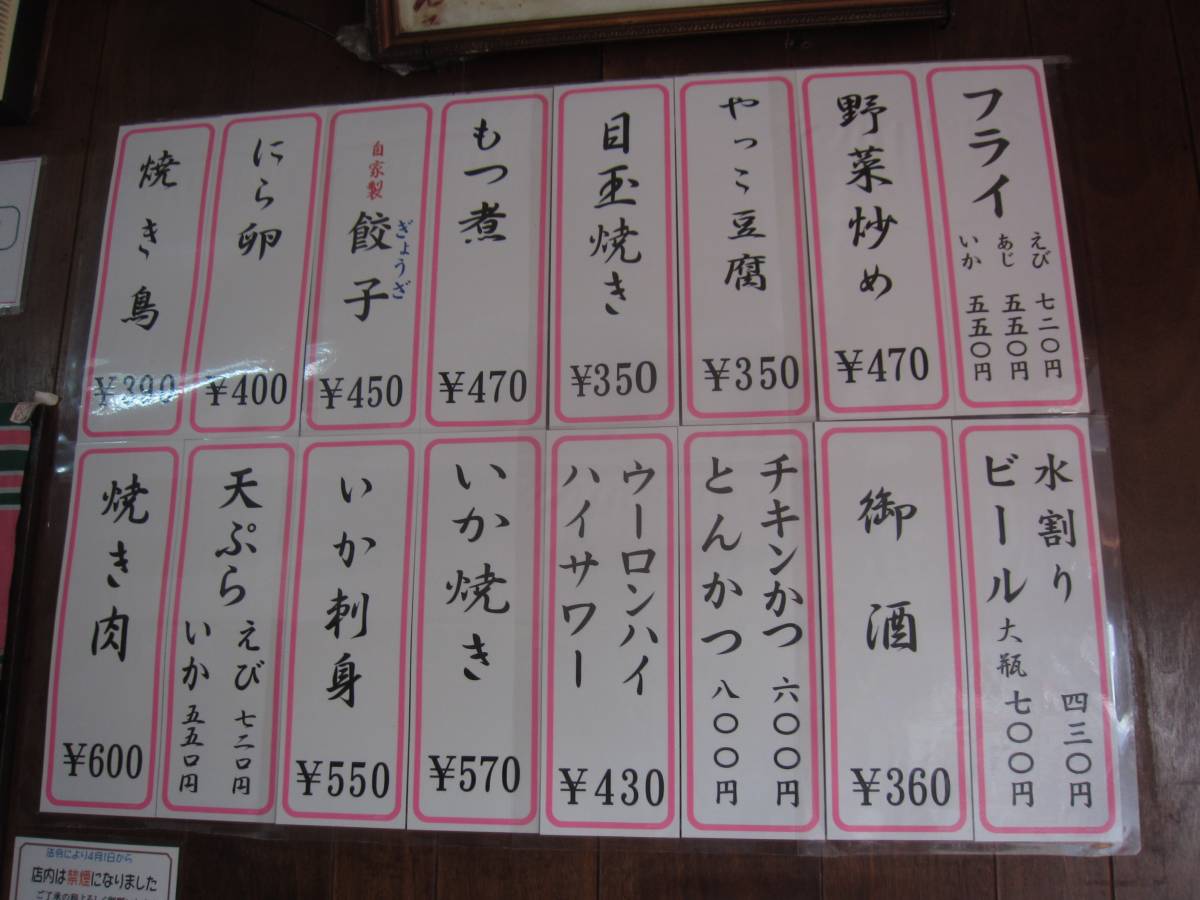 フライ
えび 七二〇円
あじ 五五〇円
いか 五五〇円
野菜炒め
¥470
やっこ豆腐
¥350
目玉焼き
¥350
もつ煮
¥470
自家製
餃子
ぎょうざ
¥450
にら卵
¥400
焼き鳥
¥390
水割り 四三〇円
ビール 大瓶 七〇〇円
御酒
¥360
チキンかつ 六〇〇円
とんかつ 八〇〇円
ウーロンハイ
ハイサワー
¥430
いか焼き
¥570
いか刺身
¥550
天ぷら えび 七二〇円
いか 五五〇円
焼き肉
¥600
法令により4月1日から
店内は禁煙になりました